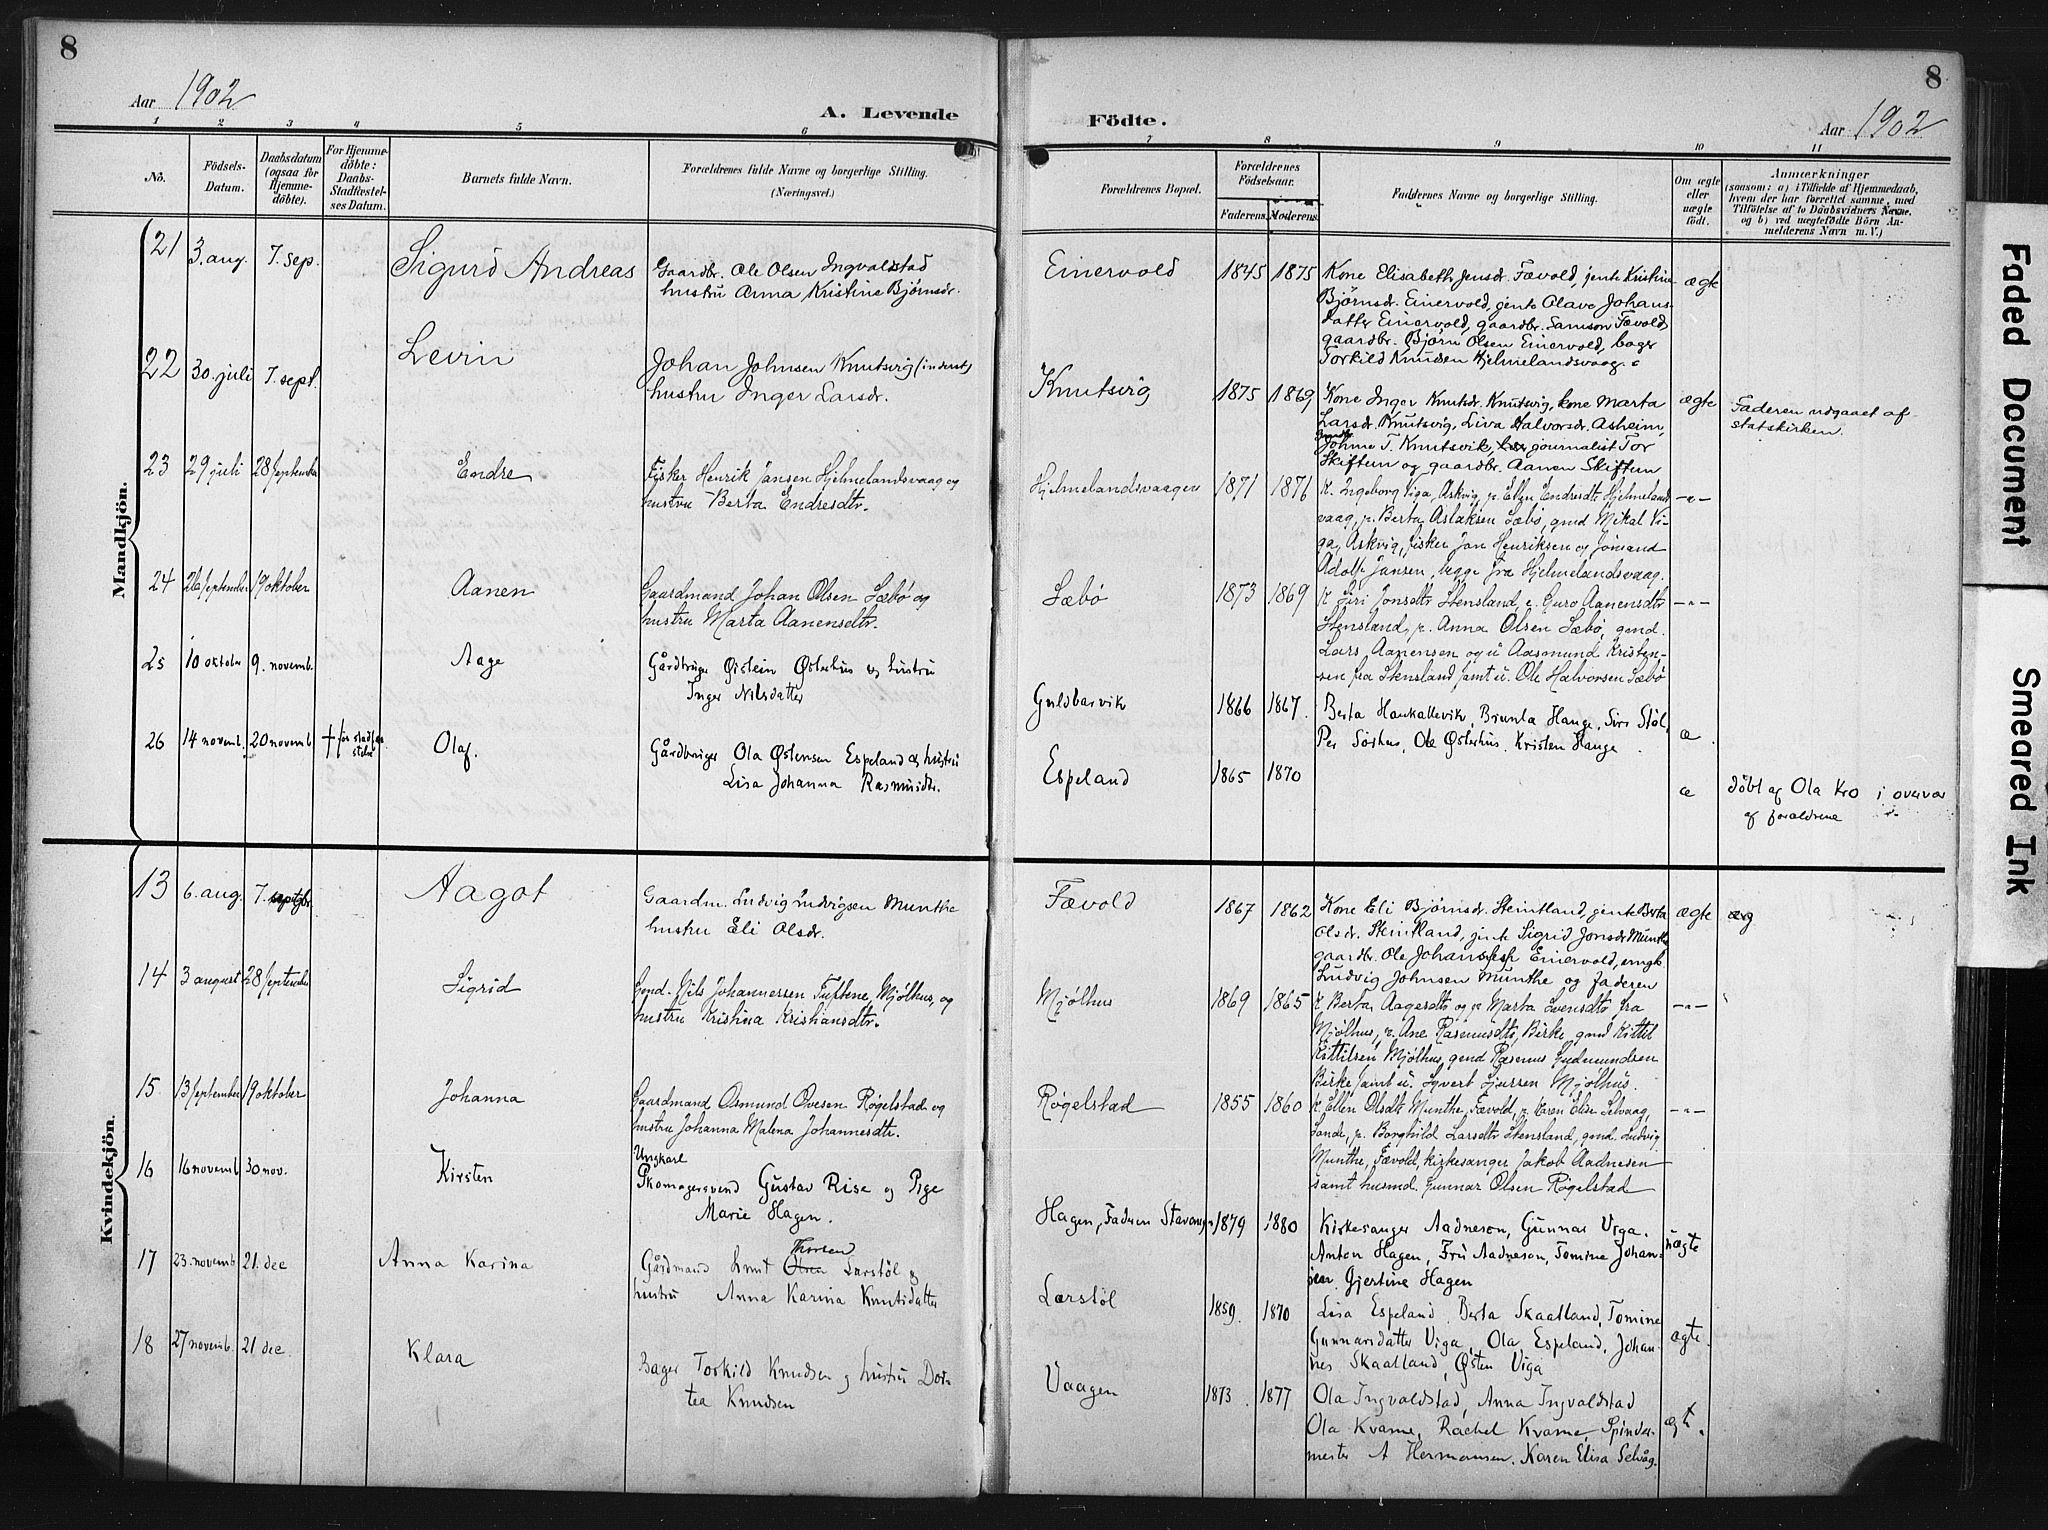 8
8
Aar 1902
A. Levende
Födte.
Aar 1902
1 2 3 4 5 6 7 8 9 10 11
Nö.
Födsels-Datum.
Daabsdatum (ogsaa for Hjemmedöbte).
For Hjemmedöbte: Daabs-Stadfæstelses Datum.
Barnets fulde Navn.
Forældrenes fulde Navne og borgerlige Stilling. (Næringsvei.)
Forældrenes Bopæl.
Forældrenes Födselsaar.
Faderens. Moderens.
Faddernes Navne og borgerlige Stilling.
Om ægte eller uægte födt.
Anmærkninger
(saasom: a) i Tilfælde af Hjemmedaab,
hvem der har forrettet samme, med
Tilföielse af to Daabsvidners Navne,
og b) ved uægtefödte Börn Anmelderens Navn m. V.)
Mandkjön.
21 3. aug. 7. sep. Sigurd Andreas
Gaardbr. Ole Olsen Ingvaldstad
hustru Anna Kristine Bjørnsdr.
Einervold 1845 1875
Kone Elisabeth Jensdr. Fævold, jente Kristine
Bjørnsdr. Einervold, jente Olave Johans-
datter Einervold, gaardbr. Samson Fævold,
gaardbr. Bjørn Olsen Einervold, bager
Torkild Knudsen Hjelmelandsvaag.
ægte
22 30. juli 7. sept. Levin
Johan Johnsen Knutsvig (inderst)
hustru Inger Larsdr.
Knutsvig 1875 1869
Kone Inger Knutsdr. Knutsvig, kone Marta
Larsdr. Knutsvig, Liva Halvorsdr. Asheim,
Johme T. Knutsvik, journalist Tor
Skiftun og gaardbr. Aanen Skiftun
ægte
Faderen udgaaet af
statskirken.
23 29 juli 28 September Endre
Fisker Henrik Jansen Hjelmelandsvaag og
hustru Berta Endresdtr.
Hjelmelandsvaagen 1871 1876
K. Ingeborg Viga, Askvig, p. Ellen Endresdtr Hjelmelands
vaag, p. Berta Aslaksen Sæbø, gmd Mikal Vi-
ga, Askvig, fisker Jan Henriksen og sømand
Adolf Jansen, begge fra Hjelmelandsvaag.
-"-
24 26 September 19 oktober Aanen
Gaardmand Johan Olsen Sæbø og
hustru Marta Aanensdtr.
Sæbø 1873 1869
K Siri Jonsdtr Stensland, p. Guro Aanensdtr
Stensland, p. Anna Olsen Sæbø, gmd.
Lars Aanensen og u Aasmund Kristen-
sen fra Stensland samt u. Ole Halvorsen Sæbø
-"-
25 10 oktober 9. novemb. Aage
Gårdbruger Øistein Østerhus og hustru
Inger Nilsdatter
Gulsbarvik 1866 1867.
Berta Haukallevik, Brunla Hauge, Siri Støl,
Per Sørhus, Ole Østerhus. Kristen Hauge.
æ.
26 14 novemb. 20 novemb † før stadfæ
stelse
Olaf.
Gårdbruger Ola Østensen Espeland og hustru
Lisa Johanna Rasmusdtr.
Espeland 1865 1870
æ
døbt af Ola Kro i overvær
af forældrene
Kvindekjön.
13 6. aug. 7. septbr. Aagot
Gaardm. Ludvig Ludvigsen Munthe
hustru Eli Olsdr.
Fævold 1867 1862
Kone Eli Bjørnsdr. Steintland, jente Berta
Olsdr. Steintland, jente Sigrid Jonsdr Munthe
gaardbr. Ole Johannes Einervold, ungk.
Ludvig Johnsen Munthe og faderen
ægte æg
14 3 august 28 September Sigrid
Gmd. Nils Johannessen Tuftene, Mjølhus, og
hustru Kristina Kristiansdtr.
Mjølhus 1869 1865
K Berta Aagesdtr og p. Marta Svensdtr fra
Mjølhus, p. Ane Rasmusdtr, Birke, gmd Kittil
Kittilsen Mjølhus, gmd Rasmus Gudmundsen
Birke samt u. Syvert Sjursen Mjølhus.
-"-
15 13 September 19 oktober Johanna
Gaardmand Osmund Ovesen Røgelstad og
hustru Johanna Malena Johannesdtr.
Røgelstad 1855 1860
K Ellen Olsdtr Munthe, Fævold, p. Karen Elise Selvaag,
Sande, p. Borghild Larsdtr Stensland, gmd. Ludvig
Munthe, Fævold, kirkesanger Jakob Aadnesen
samt husmd. Gunnar Olsen Røgelstad
-"-
16 16 novemb 30 nov. Kirsten
Ungkarl
Skomagersvend Gustav Rise og Pige
Marie Hagen.
Hagen, Faderen Stavanger 1879 1880
Kirkesanger Aadneson, Gunnar Viga.
Anton Hagen, Fru Aadneson, Tomine Johan-
sen Gjertine Hagen
uægte
17 23. novemb 21. dec Anna Karina
Thorsen
Gårdmand Knut Olsen Larstöl og
hustru Anna Karina Knutsdatter
Lærstöl 1859. 1870
Lisa Espeland. Berta Skaatland, Tomine
Gunnarsdatter Viga, Ola Espeland, Johan-
nes Skaatland, Østen Viga
ægte.
18 27 novemb. 21 dec Klara
Bager Torkild Knudsen og hustru Dor-
tea Knudsen
Vaagen 1873. 1877
Ola Ingvaldstad, Anna Ingvaldstad
Ola Kvame, Rachel Kvame, Spinder-
mester A Hermansen. Karen Elisa Selvåg.
ægt.
Faded Document
Smeared Ink